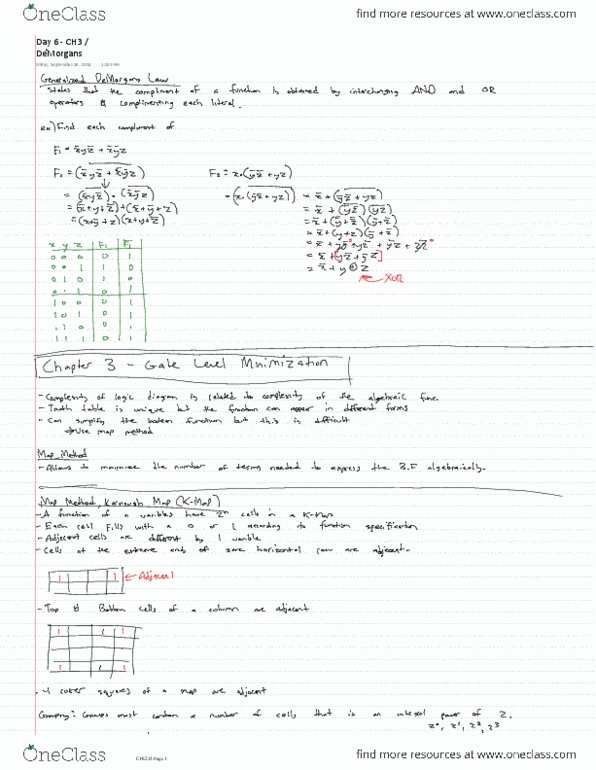 OneClass
find more resources at www.oneclass.com
Day 6 - CH3 /
DeMorgans
Generalized DeMorgans Law
States that the compliment of a function is obtained by interchanging AND and OR
operators & complimenting each literal.
ex) Find each compliment of
F₁ = x̄yz̄ + x̄ȳz
F₂ = x·(ȳz̄ + yz)
= (x+ȳ+z)·(x+y+z̄)
= x̄ + y⊕z
XOR
x y z F₁ F̄₁
0 0 0 0 1
0 0 1 1 0
0 1 0 1 0
0 1 1 0 1
1 0 0 0 1
1 0 1 0 1
1 1 0 0 1
1 1 1 0 1
Chapter 3 - Gate Level Minimization
- Complexity of logic diagram is related to complexity of the algebraic func.
- Truth table is unique but the function can appear in different forms
- Can simplify the boolean function but this is difficult
Use map method
Map Method
- Allows to minimize the number of terms needed to express the B.F algebraically.
Map Method, Karnough Map (K-Map)
- A function of n variables have 2ⁿ cells in a K-Map
- Each cell fills with a 0 or 1 according to function specification
- Adjacent cells are different by 1 variable
- Cells at the extreme ends of same horizontal row are adjacent.
1 1 ← Adjacent
- Top & Bottom cells of a column are adjacent
1 1 1
1 1 1
. 4 corner squares of a map are adjacent
Grouping: Groups must contain a number of cells that is an integral power of 2.
2⁰, 2¹, 2², 2³
OneClass
find more resources at www.oneclass.com